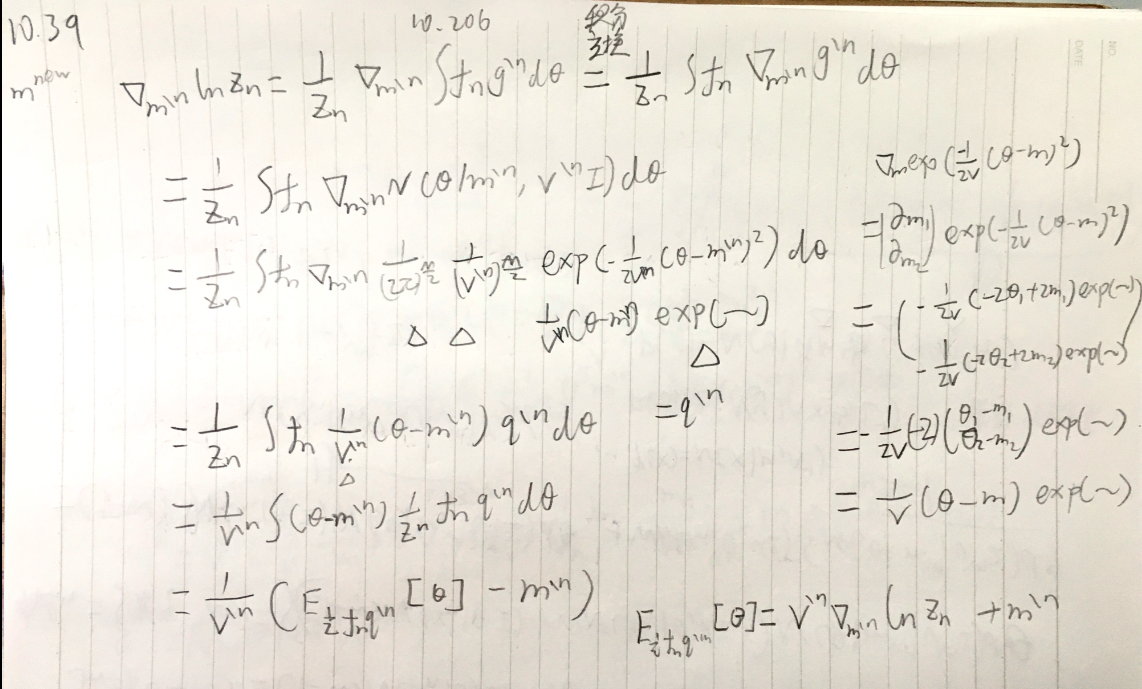 10.39
m^{new}
10.206
積分
∇_{m^{\n}} ln Z_n = 1/Z_n ∇_{m^{\n}} ∫ f_n q^{\n} dθ = 1/Z_n ∫ f_n ∇_{m^{\n}} q^{\n} dθ
= 1/Z_n ∫ f_n ∇_{m^{\n}} N(θ|m^{\n}, v^{\n} I) dθ
= 1/Z_n ∫ f_n ∇_{m^{\n}} 1/(2π)^{m/2} 1/(v^{\n})^{m/2} exp(-1/2v^{\n} (θ-m^{\n})^2) dθ
△ △ 1/v^{\n} (θ-m^{\n}) exp(~)
△
= q^{\n}
= 1/Z_n ∫ f_n 1/v^{\n} (θ-m^{\n}) q^{\n} dθ
△
= 1/v^{\n} ∫ (θ-m^{\n}) 1/Z_n f_n q^{\n} dθ
= 1/v^{\n} (E_{1/Z f_n q^{\n}} [θ] - m^{\n})
∇_m exp(-1/2v (θ-m)^2)
= (∂m_1 ∂m_2) exp(-1/2v (θ-m)^2)
= (-1/2v (-2θ_1+2m_1) exp(~)
-1/2v (-2θ_2+2m_2) exp(~))
= -1/2v (-2) (θ_1-m_1 θ_2-m_2) exp(~)
= 1/v (θ-m) exp(~)
E_{1/Z f_n q^{\n}} [θ] = v^{\n} ∇_{m^{\n}} ln Z_n + m^{\n}